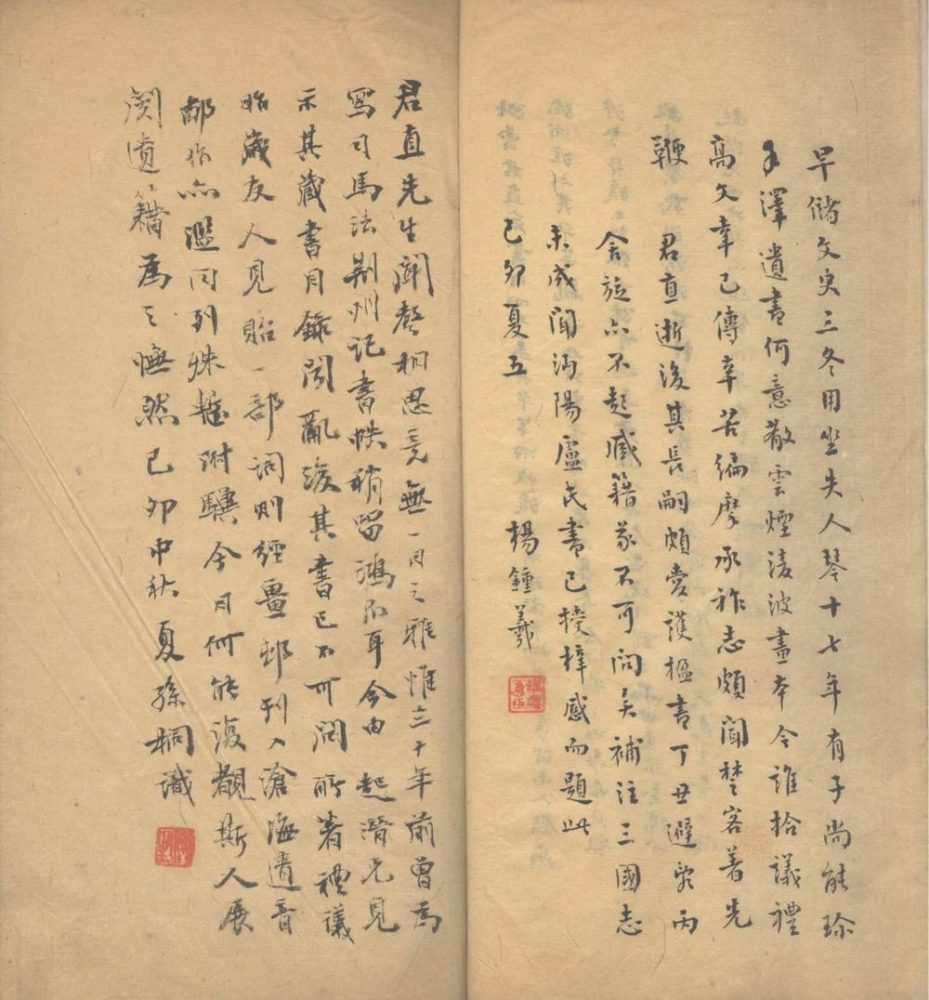 早脩文史三冬用坐失人琴十七年有子尚能珍
手澤遺書何意散雲煙淩波畫本今誰拾議禮
高文幸已傳辛苦編摩承祚志頗聞楚客著先
鞭
君直逝後其長嗣頗愛護楹書丁丑避兵丙
舍旋亦不起臧籍家不可問矣補注三國志
未成聞沔陽盧氏書已授梓感而題此
己卯夏五 楊鍾羲
君直先生聞聲相思竟無一日之雅惟三十年前曾為
寫司馬法荆州記書帙稍留鴻爪耳今由 起潛兄見
示其藏書目錄聞亂後其書已不可問所著禮議
昨歲友人見貽一部詞則經畺邨刊入滄海遺音
鄙作亦濫同列殊慙附驥今日何能復覩斯人展
閱遺籍為之憮然己卯中秋夏孫桐識